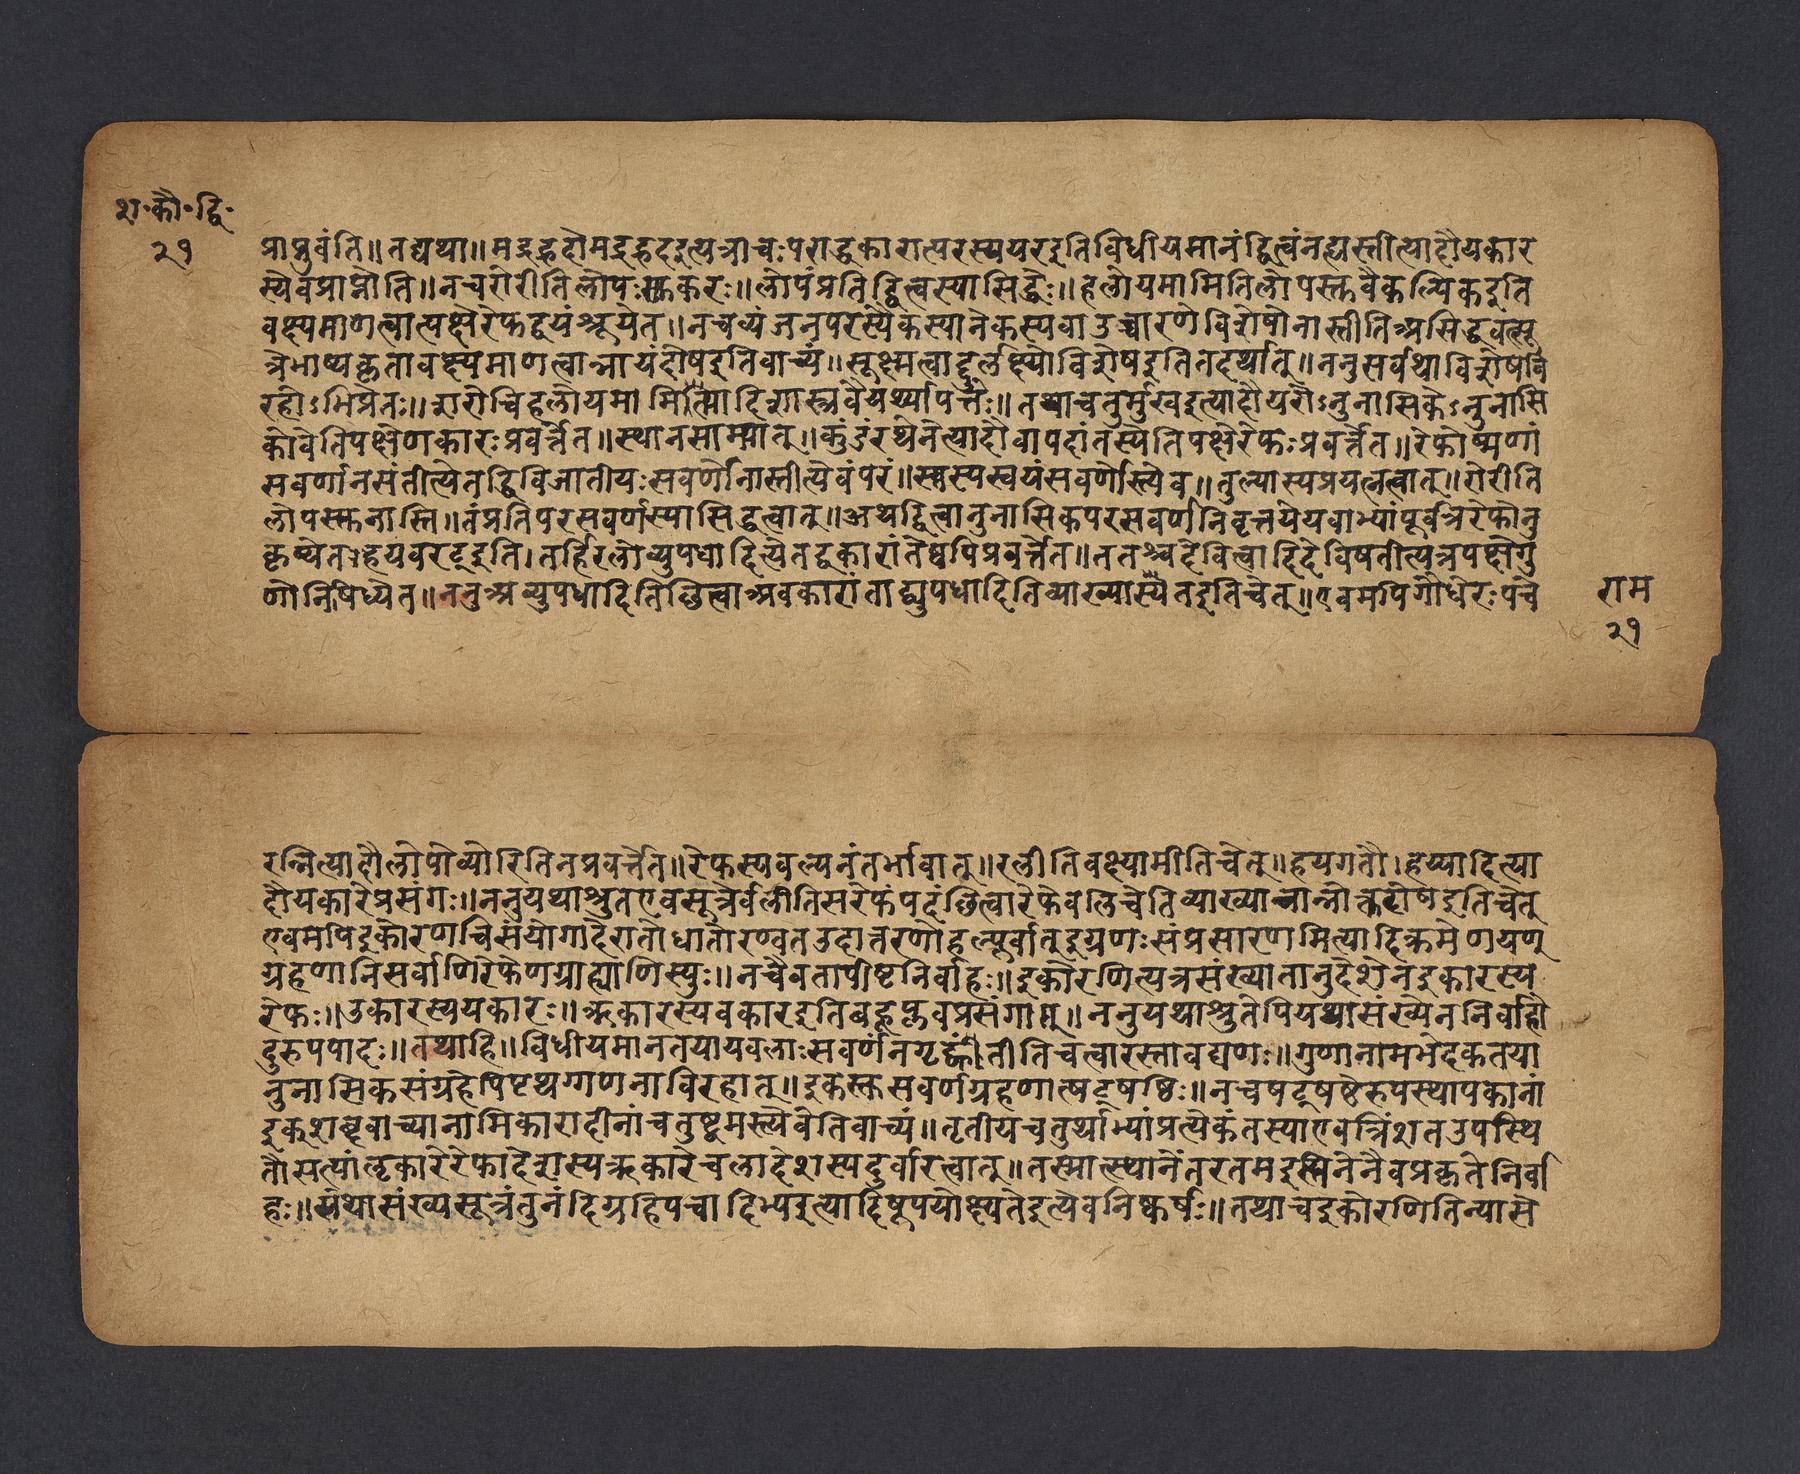 श॰कौ॰द्वि॰
२१
प्राप्नुवंति॥तद्यथा॥मद्रह्रदोमद्रह्रदइत्यत्राचःपराद्धकारात्परस्ययरइतिविधीयमानंद्वित्वंनह्यस्तीत्यादौयकार
स्येवप्राप्नोति॥नचरोरीतिलोपःस्क्तकरः॥लोपंप्रतिद्वित्वस्यासिद्धेः॥हलोयमामितिलोपस्क्तवैकल्पिकइति
वक्ष्यमाणत्वात्पक्षेरेफद्वयंश्रूयेत॥नचव्यंजनपरस्यैकस्यानेकस्यवाउच्चारणेविशेषोनास्तीतिअसिद्धवत्सू
त्रेभाष्यकृतावक्ष्यमाणत्वान्नायंदोषइतिवाच्यं॥सूक्ष्मत्वाद्दुर्लक्ष्योविशेषइतितदर्थात्॥ननुसर्वथाविशेषवि
रहोऽभिप्रेतः॥शरोचिहलोयमामित्यादिशास्त्रवैयर्थ्यापत्तेः॥तथाचचतुर्मुखइत्यादौयरोऽनुनासिकेऽनुनासि
कोवेतिपक्षेणकारःप्रवर्त्तेत॥स्थानसाम्यात्॥कुंडंरथेनेत्यादौवापदांतस्येतिपक्षेरेफःप्रवर्त्तेत॥रेफोष्मणां
सवर्णानसंतीत्येतद्धिविजातीयःसवर्णोनास्तीत्येवंपरं॥स्वस्यस्वयंसवर्णोस्त्येव॥तुल्यास्यप्रयत्नत्वात्॥रोरीति
लोपस्क्तनास्ति॥तंप्रतिपरसवर्णस्यासिद्धत्वात्॥अथद्वित्वानुनासिकपरसवर्णनिवृत्तयेयवाभ्यांपूर्वत्रेरेफोनु
कृष्येतहयवरट्इति।तर्हिरलोव्युपधादित्येतद्वकारांतेष्वपिप्रवर्त्तेत॥ततश्चदेवित्वादिदेविषतीत्यत्रपक्षेगु
णोनिषिध्येत॥ननुअव्युपधादितिछित्वाअवकारांताद्व्युपधादितिव्याख्यास्येतइतिचेत्॥एवमपिगौधेरःपचे
राम
२१
रन्नित्यादौलोपोव्योरितिनप्रवर्त्तेत॥रेफस्यवल्यनंतर्भावात्॥रलीतिवक्ष्यामीतिचेत्॥हयगतौ।हय्यादित्या
दौयकारेप्रसंगः॥ननुयथाश्रुतएवसूत्रेर्वलीतिसरेफंपदंछित्वारेफेवलिचेतिव्याख्यानान्नोक्तदोषइतिचेत्
एवमपिइकोरणचिसंयोगादेरातोधातोरण्वतउदात्तरणोहल्पूर्वात्इग्रणःसंप्रसारणमित्यादिक्रमेणयण्
ग्रहणानिसर्वाणिरेफेणग्राह्याणिस्युः॥नचैवतापीष्टनिर्वाहः॥इकोरणित्यत्रसंख्यातानुदेशेनइकारस्य
रेफः॥उकारस्ययकारः॥ऋकारस्यवकारइतिबहूप्लवप्रसंगात्॥ननुयथाश्रुतेपियथासंख्येननिर्वाहो
दुरुपपादः॥तथाहि॥विधीयमानतयायवलाःसवर्णंनगृह्णंतीतिचत्वारस्तावद्यणः॥गुणानामभेदकतया
नुनासिकसंग्रहेपिपृथग्गणनाविरहात्॥इकस्क्तसवर्णग्रहणात्षट्षष्ठिः॥नचषट्षष्टेरुपस्थापकानां
इक्शब्दवाच्यानामिकारादीनांचतुष्ट्वमस्त्येवेतिवाच्यं॥तृतीयचतुर्थाभ्यांप्रत्येकंतस्याएवत्रिंशतउपस्थि
तौसत्यांलृकारेरेफादेशस्यऋकारेचलादेशस्यदुर्वारत्वात्॥तस्मात्स्थानेंतरतमइत्यनेनैवप्रकृतेनिर्वा
हः॥यथासंख्यसूत्रंतुनंदिग्रहिपचादिभ्यइत्यादिषूपयोक्ष्यतेइत्येवनिष्कर्षः॥तथाचइकोरणितिन्यासे